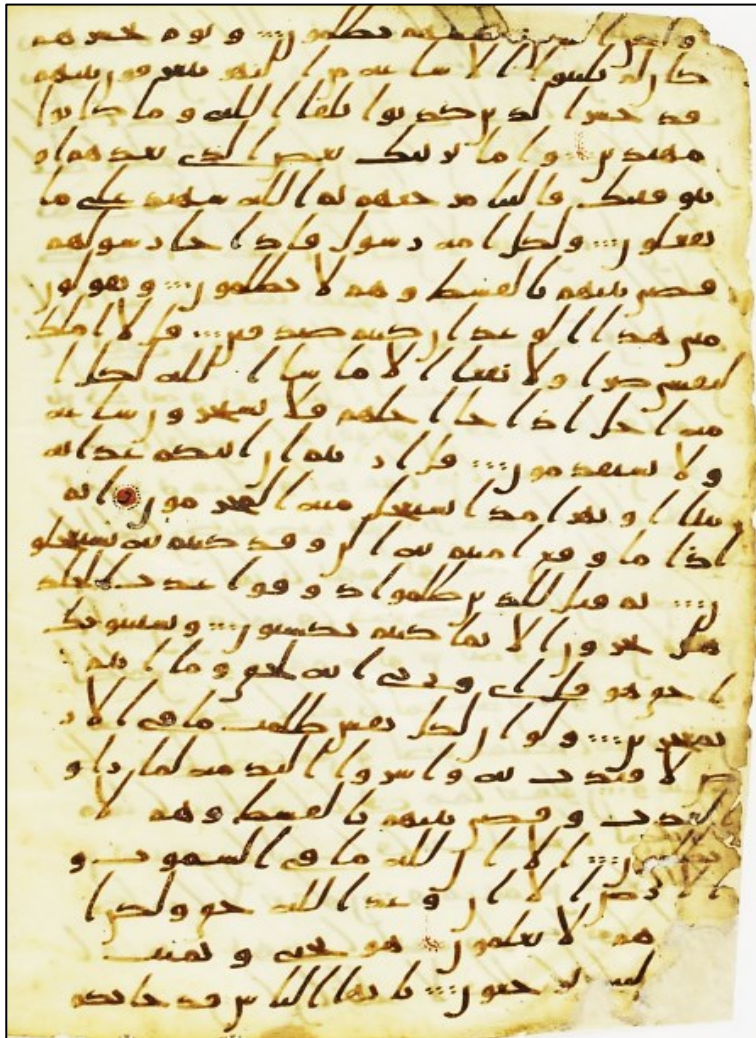 و لكن الناس انفسهم يظلمون و يوم يحشرهم
كان لم يلبثوا الا ساعة من النهر يتعرفون بينهم
قد خسر الذين كذبوا بلقا الله و ما كانوا
مهتدين و اما نرينك بعض الذي نعدهم او
نتوفينك فالينا مرجعهم ثم الله شهيد على ما
يفعلون ولكل امة رسول فاذا جا رسولهم
قضي بينهم بالقسط و هم لا يظلمون و يقولون
متى هذا الوعد ان كنتم صدقين قل لا املك
لنفسي ضرا ولا نفعا الا ما شا الله لكل ا
مة اجل اذا جا اجلهم فلا يستخرون ساعة
ولا يستقدمون قل اريتم ان اتيكم عذابه
بيتا او نهرا مذا يستعجل منه المجرمون اثم
اذا ما وقع امنتم به الن و قد كنتم به تستعجلو
ن ثم قيل للذين ظلموا ذوقوا عذاب الخلد
هل تجزون الا بما كنتم تكسبون و يستنبونك
احق هو قل اي و ربي انه لحق و ما انتم
بمعجزين ولو ان لكل نفس ظلمت ما في الار
ض لافتدت به واسروا الندمة لما راو
العذب و قضي بينهم بالقسط وهم لا
يظلمون الا ان لله ما في السموت و
الارض الا ان وعد الله حق ولكن ا
هم لا يعلمون هو يحي و يميت
اليه ترجعون يايها الناس قد جاتكم